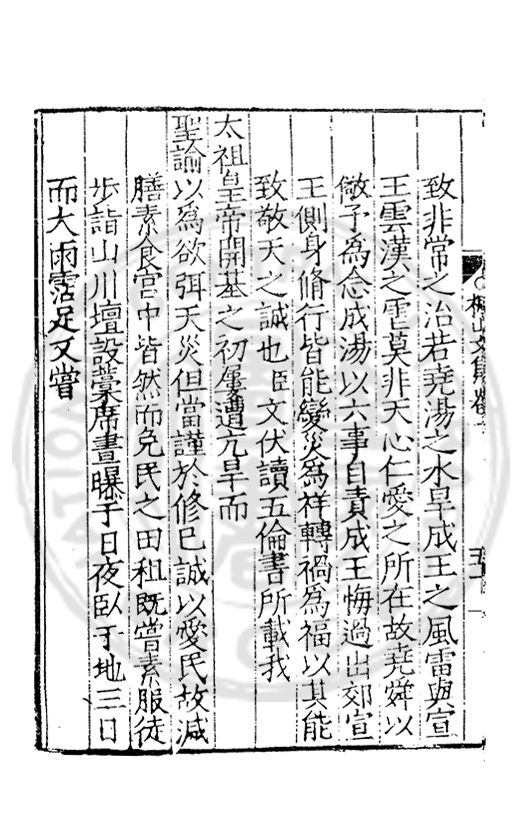 致非常之治若堯湯之水旱成王之風雷與宣
王雲漢之雩莫非天心仁愛之所在故堯舜以
儆予為念成湯以六事自責成王悔過出郊宣
王側身脩行皆能變災為祥轉禍為福以其能
致敬天之誠也臣文伏讀五倫書所載我
太祖皇帝開基之初屢遭亢旱而
聖諭以為欲弭天災但當謹於修己誠以愛民故減
膳素食宮中皆然而免民之田租既嘗素服徒
步詣山川壇設藁席晝曝于日夜臥于地三日
而大雨霑足又嘗